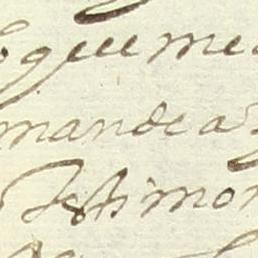 que me
mande a
Testimon